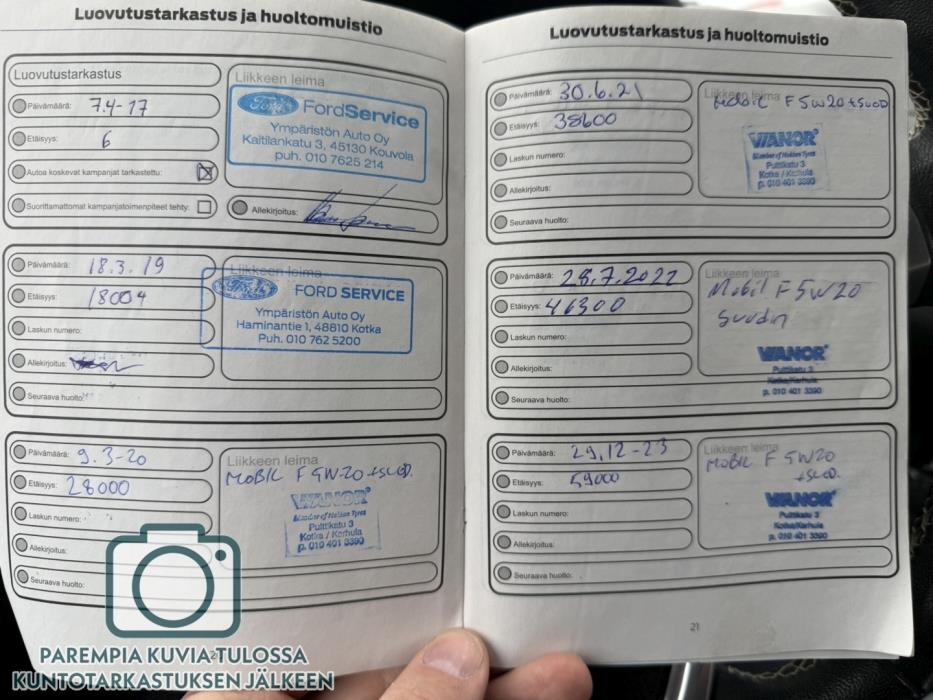 Luovutustarkastus ja huoltomuistio
Luovutustarkastus
Päivämäärä: 7.4-17
Etäisyys: 6
Autoa koskevat kampanjat tarkastettu:
Suorittamattomat kampanjatoimenpiteet tehty:
Liikkeen leima
Ford FordService
Ympäristön Auto Oy
Kaitilankatu 3, 45130 Kouvola
puh. 010 7625 214
Allekirjoitus:
Päivämäärä: 18.3.19
Etäisyys: 18004
Laskun numero:
Allekirjoitus:
Seuraava huolto:
Liikkeen leima
Ford FORD SERVICE
Ympäristön Auto Oy
Haminantie 1, 48810 Kotka
Puh. 010 762 5200
Päivämäärä: 9.3-20
Etäisyys: 28000
Laskun numero:
Allekirjoitus:
Seuraava huolto:
Liikkeen leima
MOBIL F 5W20 +SUOD.
VIANOR
Member of Nokian Tyres
Putkikatu 3
Kotka / Karhula
p. 010 401 3390
Luovutustarkastus ja huoltomuistio
Päivämäärä: 30.6.21
Etäisyys: 38600
Laskun numero:
Allekirjoitus:
Seuraava huolto:
Liikkeen leima
Mobil F 5W20 +SUOD
VIANOR
Member of Nokian Tyres
Putkikatu 3
Kotka / Karhula
p. 010 401 3390
Päivämäärä: 28.7.2022
Etäisyys: 46300
Laskun numero:
Allekirjoitus:
Seuraava huolto:
Liikkeen leima
Mobil F 5W20
Suodin
VIANOR
Putkikatu 3
Kotka/Karhula
p. 010 401 3390
Päivämäärä: 29.12-23
Etäisyys: 59000
Laskun numero:
Allekirjoitus:
Seuraava huolto:
Liikkeen leima
MOBIL F 5W20
+SUOD.
VIANOR
Putkikatu 3
Kotka/Karhula
p. 010 401 3390
21
PAREMPIA KUVIA TULOSSA
KUNTOTARKASTUKSEN JÄLKEEN